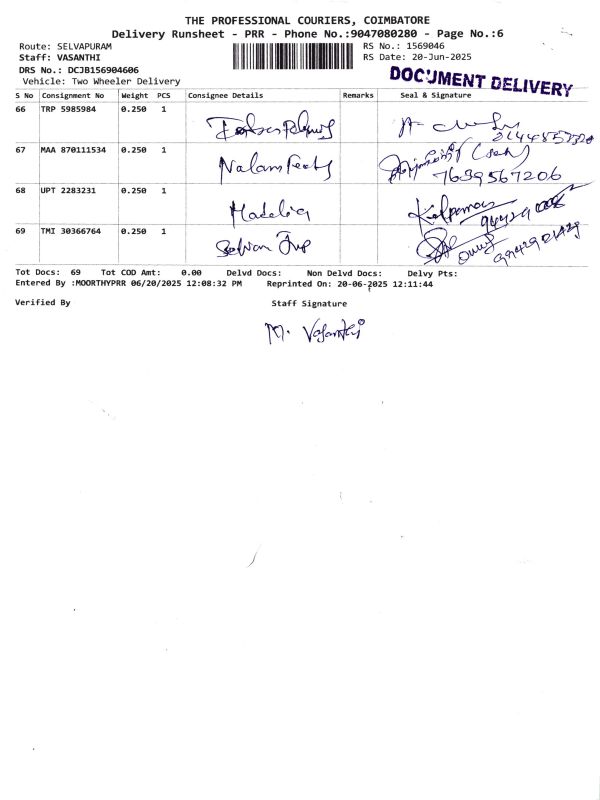 THE PROFESSIONAL COURIERS, COIMBATORE
Delivery Runsheet - PRR - Phone No.:9047080280 - Page No.:6
Route: SELVAPURAM
RS No.: 1569046
Staff: VASANTHI
RS Date: 20-Jun-2025
DRS No.: DCJB156904606
Vehicle: Two Wheeler Delivery
DOCUMENT DELIVERY
S No Consignment No Weight PCS Consignee Details Remarks Seal & Signature
66 TRP 5985984 0.250 1
67 MAA 870111534 0.250 1 Nalam
7639567206
68 UPT 2283231 0.250 1
69 TMI 30366764 0.250 1 Selvan
Tot Docs: 69 Tot COD Amt: 0.00 Delvd Docs: Non Delvd Docs: Delvy Pts:
Entered By :MOORTHYPRR 06/20/2025 12:08:32 PM Reprinted On: 20-06-2025 12:11:44
Verified By Staff Signature
M. Vasanthi